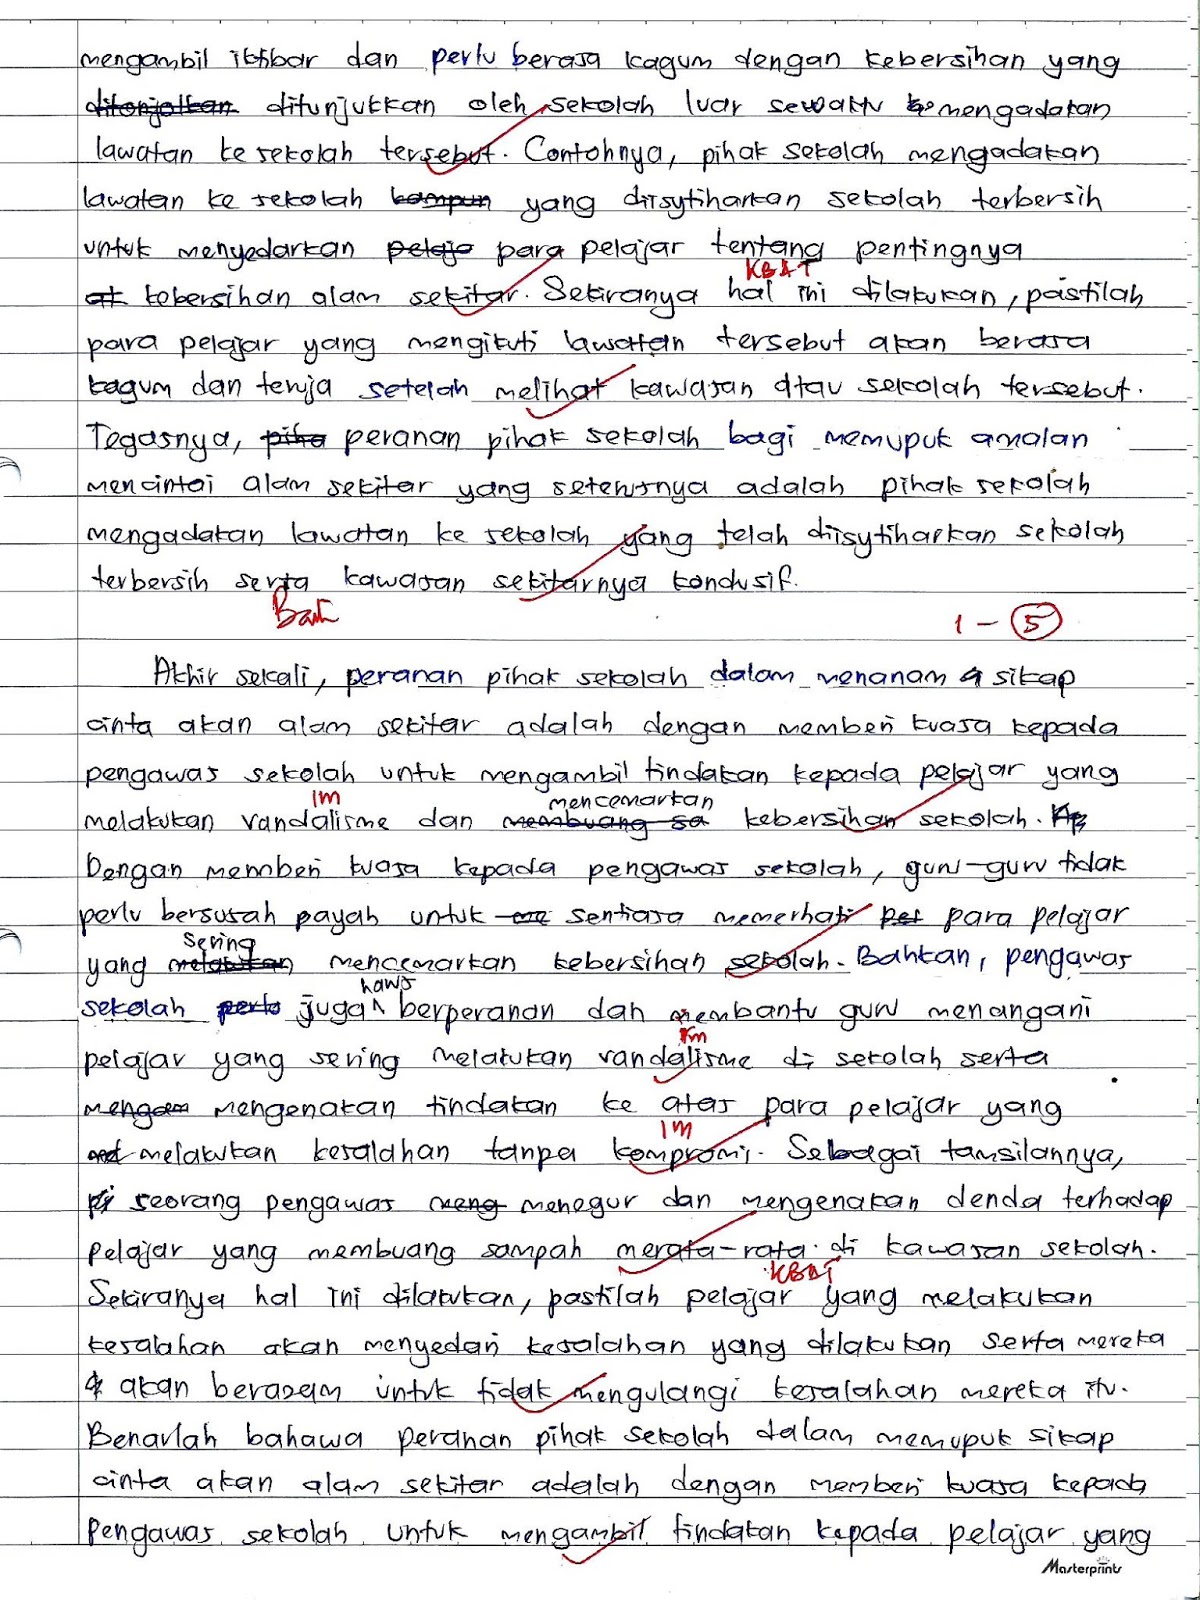 mengambil iktibar dan perlu berasa kagum dengan kebersihan yang
ditonjolkan ditunjukkan oleh sekolah luar sewaktu mengadakan
lawatan ke sekolah tersebut. Contohnya, pihak sekolah mengadakan
lawatan ke sekolah kampun yang diisytiharkan sekolah terbersih
untuk menyedarkan pelaja para pelajar tentang pentingnya
KBAT
kebersihan alam sekitar. Sekiranya hal ini dilakukan, pastilah
para pelajar yang mengikuti lawatan tersebut akan berasa
kagum dan teruja setelah melihat kawasan atau sekolah tersebut.
Tegasnya, piha peranan pihak sekolah bagi memupuk amalan
mencintai alam sekitar yang seterusnya adalah pihak sekolah
mengadakan lawatan ke sekolah yang telah diisytiharkan sekolah
terbersih serta kawasan sekitarnya kondusif.
Baik
1 - 5
Akhir sekali, peranan pihak sekolah dalam menanam sikap
cinta akan alam sekitar adalah dengan memberi kuasa kepada
pengawas sekolah untuk mengambil tindakan kepada pelajar yang
IM mencemarkan
melakukan vandalisme dan membuang sa kebersihan sekolah.
Dengan memberi kuasa kepada pengawas sekolah, guru-guru tidak
perlu bersusah payah untuk sentiasa memerhati pel para pelajar
sering
yang melakukan mencemarkan kebersihan sekolah. Bahkan, pengawas
harus
sekolah perlu juga berperanan dan membantu guru menangani
IM
pelajar yang sering melakukan vandalisme di sekolah serta
mengam mengenakan tindakan ke atas para pelajar yang
IM
melakukan kesalahan tanpa kompromi. Sebagai tamsilannya,
seorang pengawas meng menegur dan mengenakan denda terhadap
pelajar yang membuang sampah merata-rata di kawasan sekolah.
KBAT
Sekiranya hal ini dilakukan, pastilah pelajar yang melakukan
kesalahan akan menyedari kesalahan yang dilakukan serta mereka
akan berazam untuk tidak mengulangi kesalahan mereka itu.
Benarlah bahawa peranan pihak sekolah dalam memupuk sikap
cinta akan alam sekitar adalah dengan memberi kuasa kepada
Pengawas sekolah untuk mengambil tindakan kepada pelajar yang
Masterprints